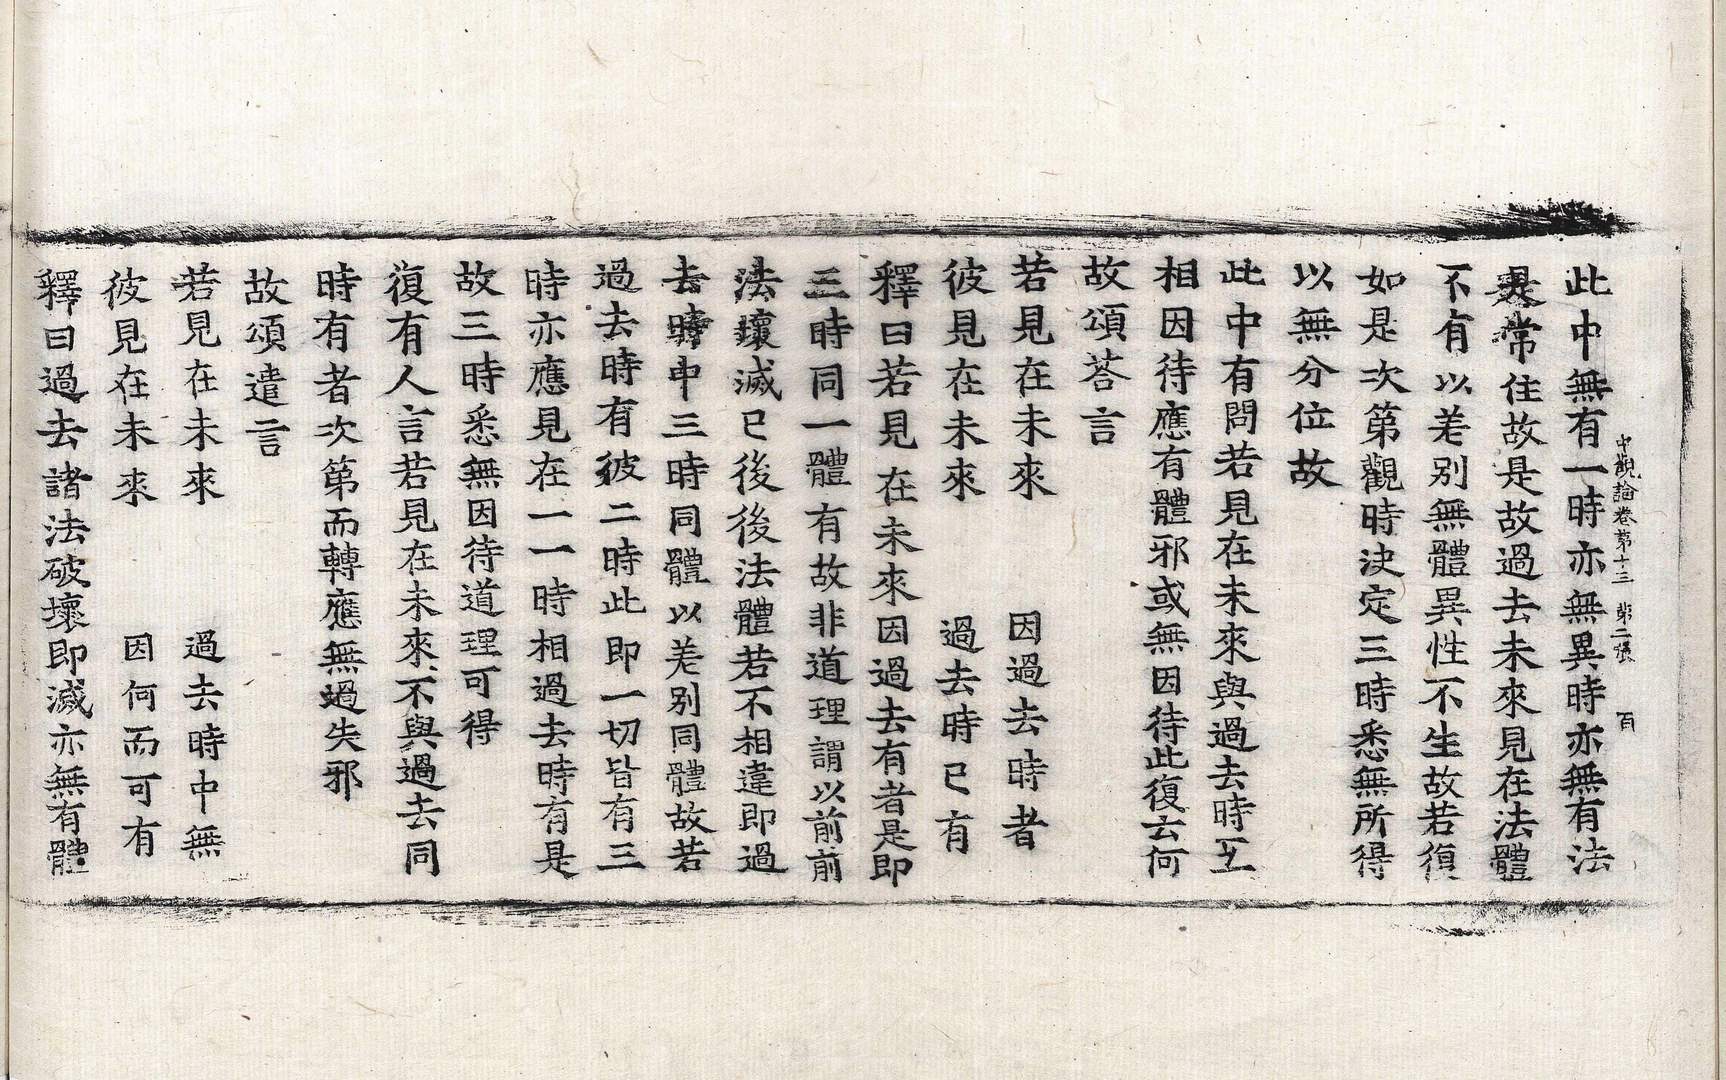 中觀論卷第十三　第二張　百
此中無有一時亦無異時亦無有法
是常住故是故過去未來見在法體
不有以差别無體異性不生故若復
如是次第觀時決定三時悉無所得
以無分位故
此中有問若見在未來與過去時互
相因待應有體邪或無因待此復云何
故頌荅言
若見在未來　因過去時者
彼見在未來　過去時已有
釋曰若見在未來因過去有者是即
三時同一體有故非道理謂以前前
法壞滅已後後法體若不相違即過
去時中三時同體以差别同體故若
過去時有彼二時此即一切皆有三
時亦應見在一一時相過去時有是
故三時悉無因待道理可得
復有人言若見在未來不與過去同
時有者次第而轉應無過失邪
故頌遣言
若見在未來　過去時中無
彼見在未來　因何而可有
釋曰過去諸法破壞即滅亦無有體